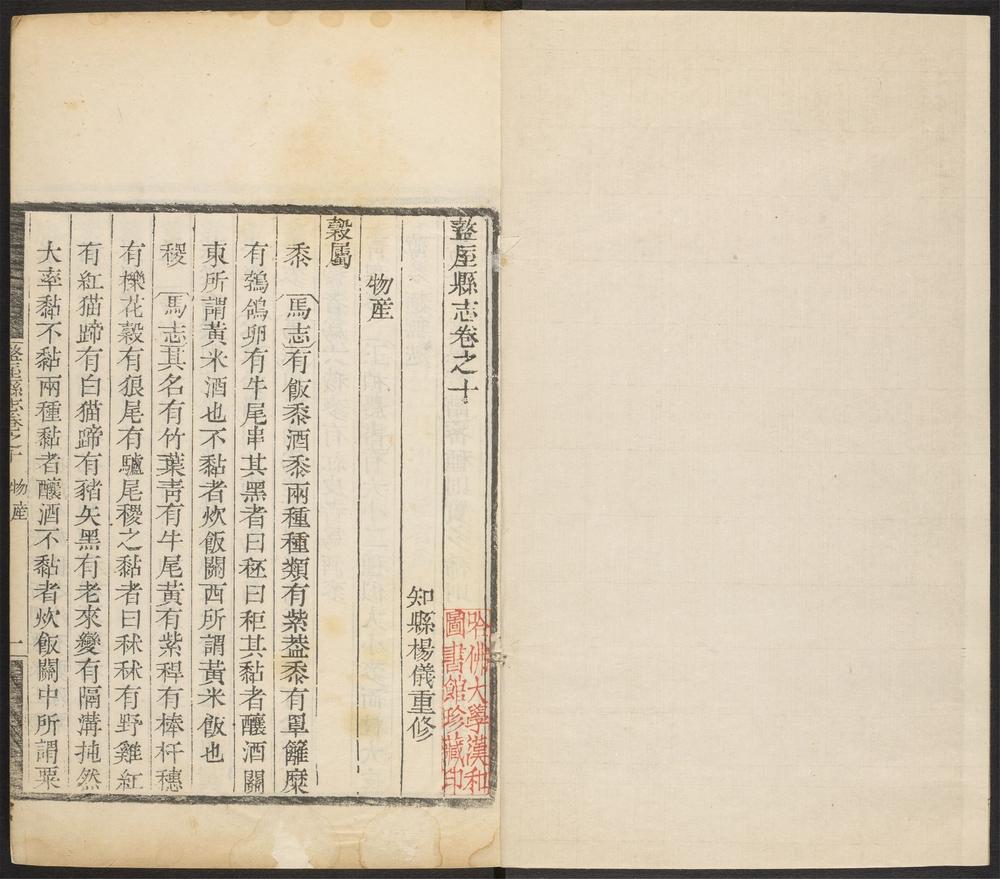 盩厔縣志卷之十
知縣楊儀重修
物産
穀屬
黍 馬志有飯黍酒黍兩種種類有紫葢黍有罩籬糜
有鵓鴿卵有牛尾串其黑者曰秠曰秬其黏者釀酒關
東所謂黃米酒也不黏者炊飯關西所謂黃米飯也
稷 馬志其名有竹葉靑有牛尾黃有紫稈有棒杆穗
有櫟花穀有狼尾有驢尾稷之黏者曰秫秫有野雞紅
有紅猫蹄有白猫蹄有豬矢黑有老來變有隔溝㧣然
大率黏不黏兩種黏者釀酒不黏者炊飯關中所謂粟
盩厔縣志卷之十 物産 一
哈佛大學漢和
圖書館珍藏印